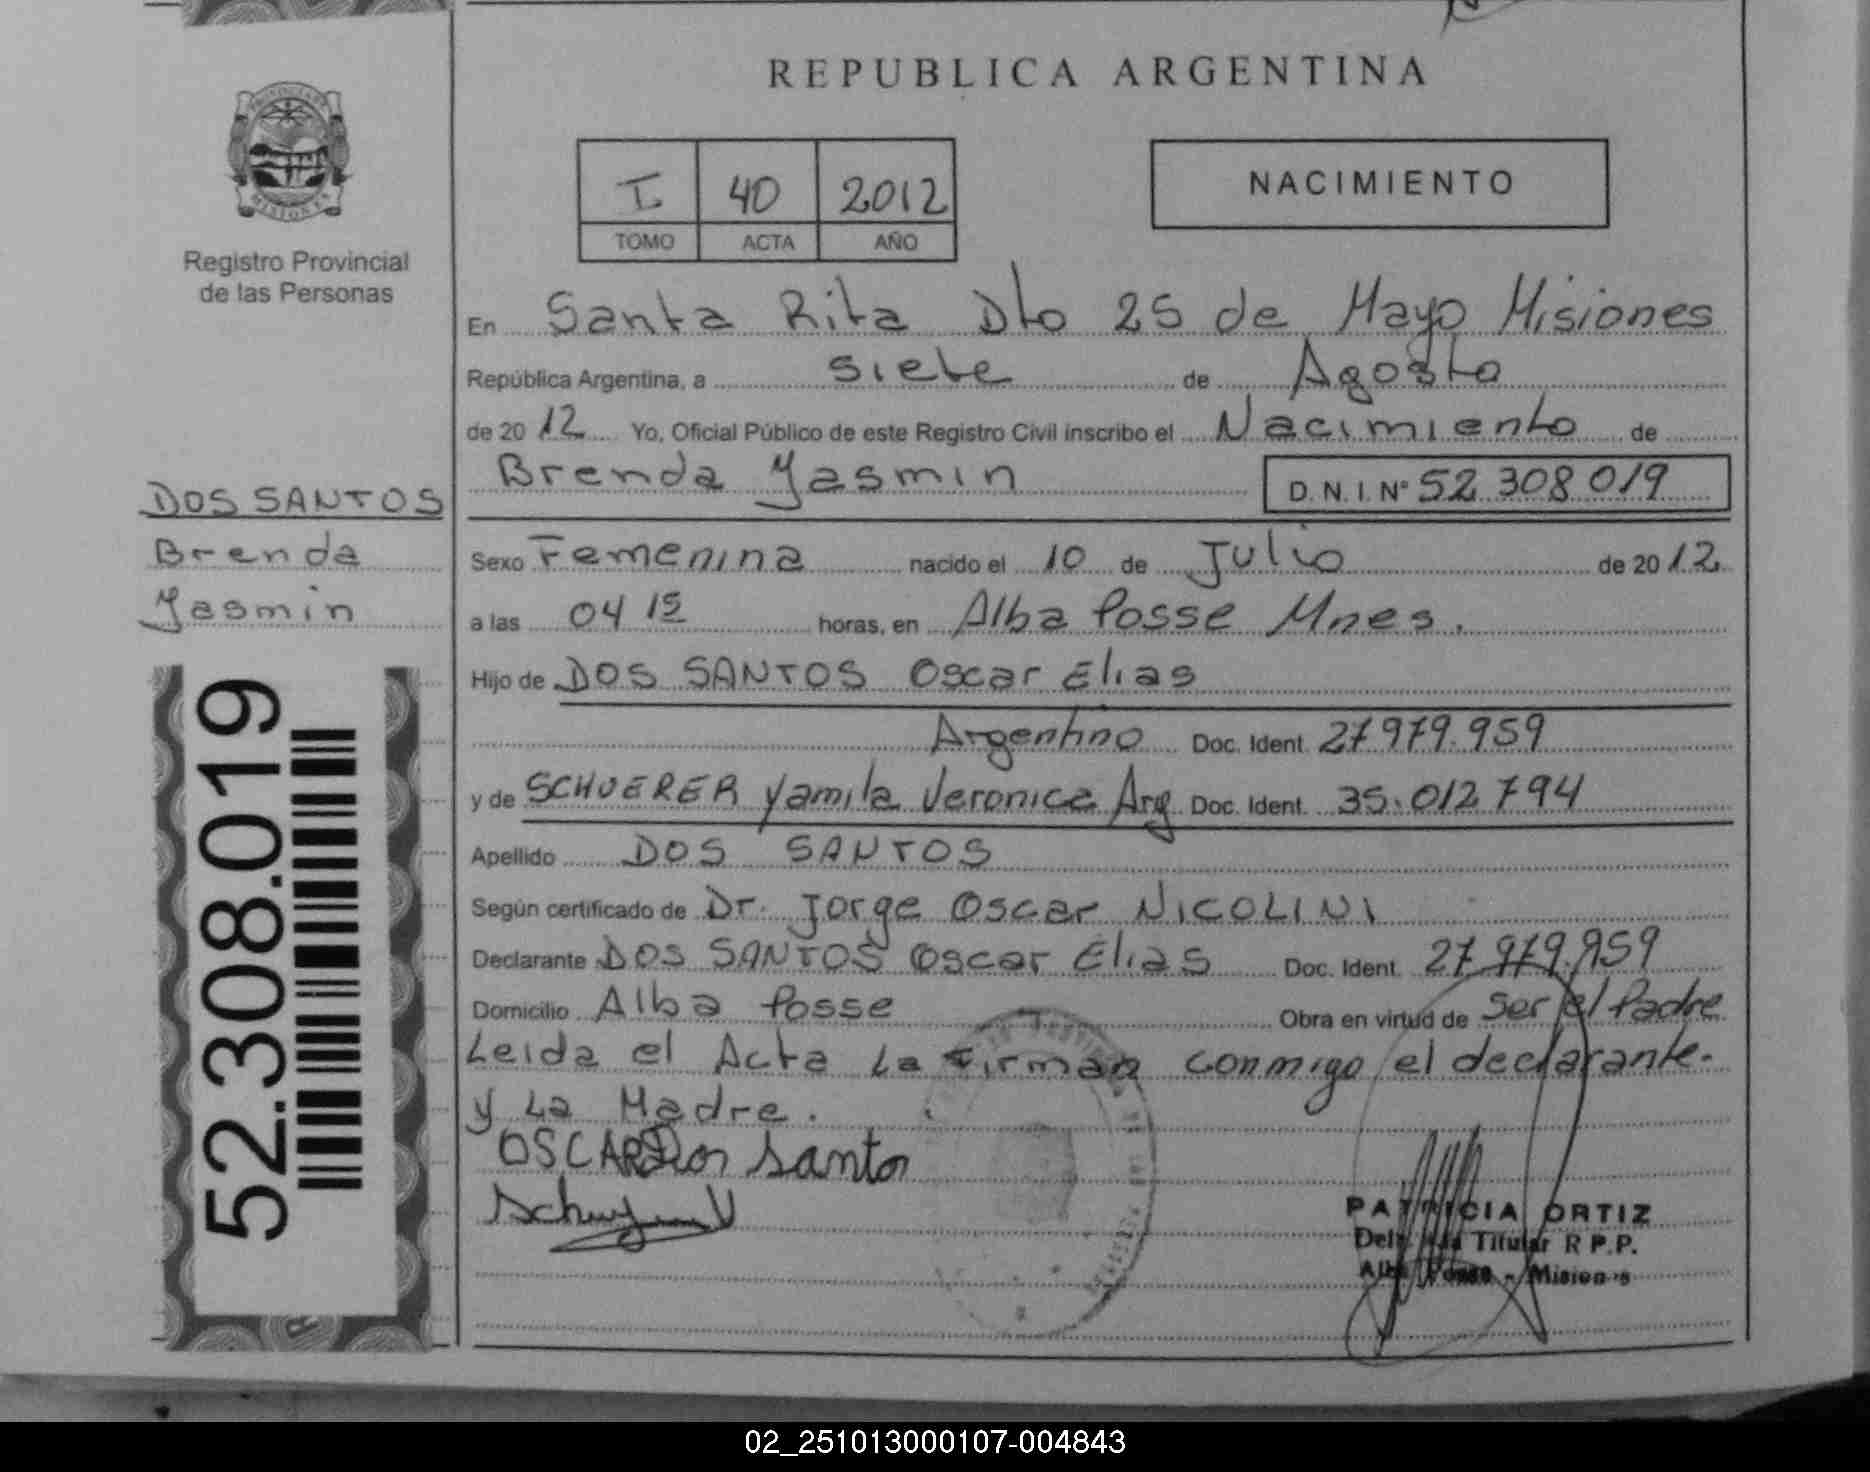 REPUBLICA ARGENTINA
I 40 2012
TOMO ACTA AÑO
NACIMIENTO
PROVINCIA DE
MISIONES
Registro Provincial
de las Personas
En Santa Rita Dto 25 de Mayo Misiones
República Argentina, a siete de Agosto
de 2012 Yo, Oficial Público de este Registro Civil inscribo el Nacimiento de
Brenda Yasmin D.N.I. N° 52 308 019
DOS SANTOS
Brenda
Yasmin
Sexo Femenina nacido el 10 de Julio de 2012
a las 04 15 horas, en Alba Posse Mnes.
Hijo de DOS SANTOS Oscar Elias
Argentino Doc. Ident. 27 979.959
y de SCHUERER Yamila Veronica Arg Doc. Ident. 35.012 794
Apellido DOS SANTOS
Según certificado de Dr. Jorge Oscar NICOLINI
Declarante DOS SANTOS Oscar Elias Doc. Ident. 27.979.959
Domicilio Alba Posse Obra en virtud de Ser el Padre
Leida el Acta La Firman conmigo el declarante.
y La Madre.
OSCAR Dos Santos
PATRICIA ORTIZ
Titular R.P.P.
Alba Posse - Misiones
52.308.019
02_251013000107-004843